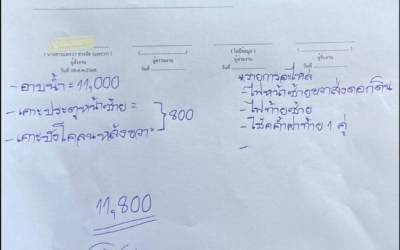 ผู้สั่งงาน
ผู้ตรวจงาน
(ไม่มีข้อมูล)
ผู้รับงาน
วันที่
วันที่
วันที่
วันที่
- อาบน้ำ = 11,000
- เคาะประตูหน้าซ้าย =
- เคาะบังโคลนหลังขวา
800
รายการอะไหล่
- ไฟหน้าซ้ายขวาส่องดอกดิน
- ไฟท้ายซ้าย
- โช๊คค้ำฝาท้าย 1 คู่
-
11,800